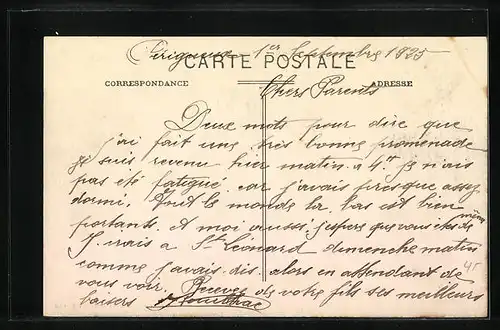 Périgueux 1er Septembre 1925
CARTE POSTALE
CORRESPONDANCE
ADRESSE
Chers Parents
Deux mots pour dire que
j'ai fait une très bonne promenade
je suis revenu hier matin à 4H je n'ais
pas été fatigué car j'avais presque assez
dormi. Tout le monde la bas est bien
portants. A moi aussi j'espère que vous êtes de
même
J'irais à St Léonard dimenche matin
comme j'avais dis alors en attendant de
vous voir. Recevez de votre fils ses meilleurs
baisers
45